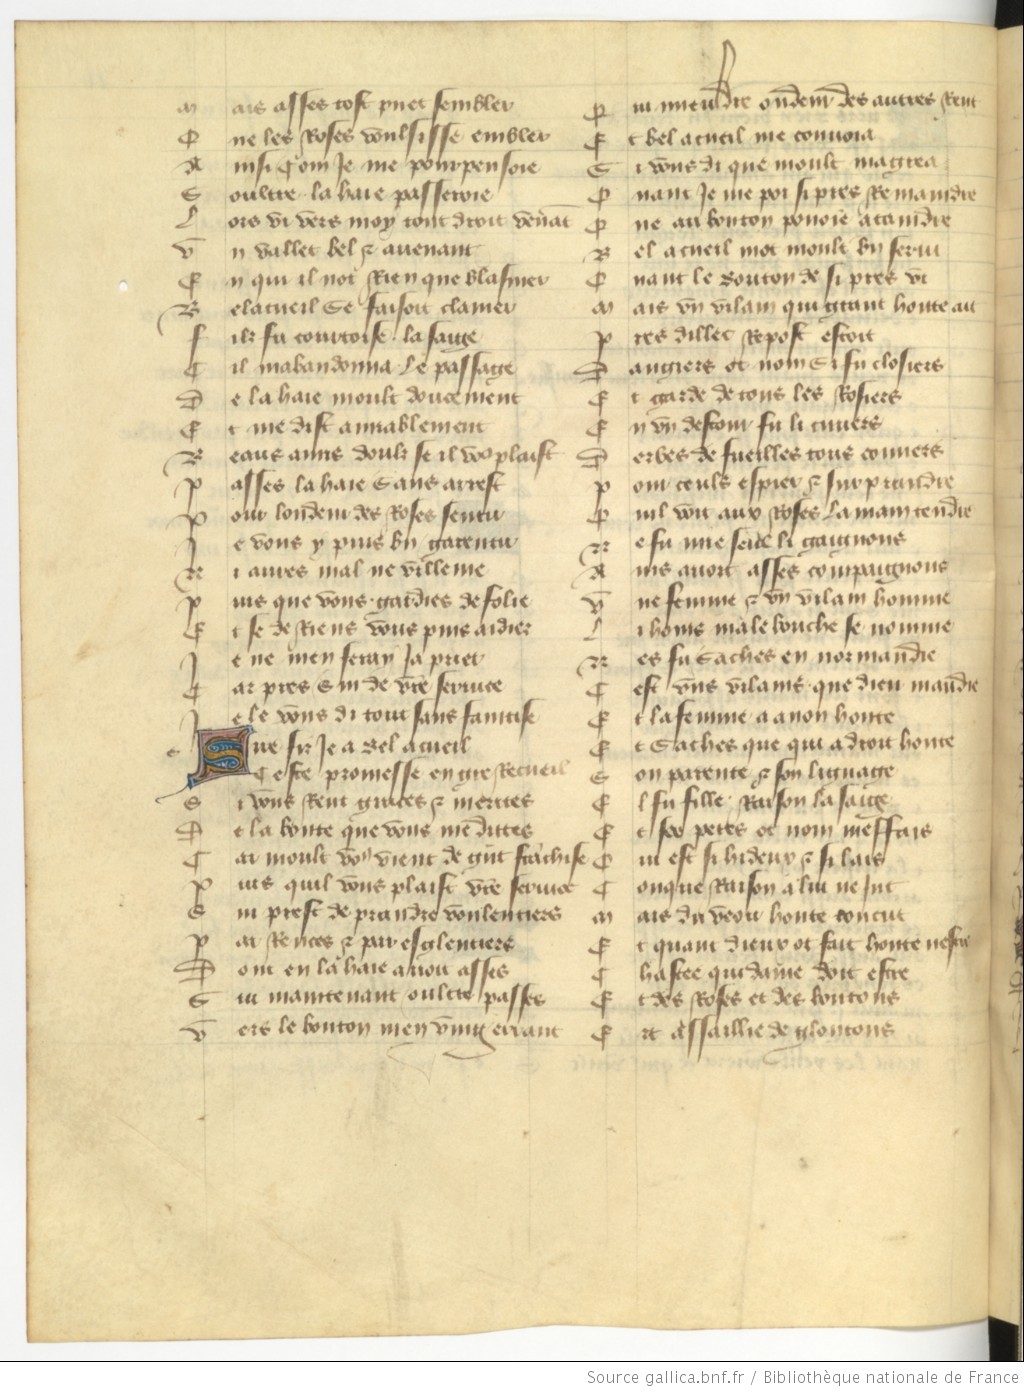 M ais asses tost puet sembler
Q ue les Roses voulsisse embler
A insi Com Je me pourpensoie
S oultre la haie passeroie
L ors vi vers moy tout droit venāt
V n vallet bel & auenant
E n qui il not Rien que blasmer
B elacueil Se faisoit clamer
F ilz fu courtoisie la saige
C il mabandonna Le passage
D e la haie moult doucement
E t me dist amiablement
B eaus amis doulz se il vo9 plaist
P asses la haie Sans arrest
P our londeur des Roses sentir
J e vous y puis bn garentir
N i aures mal ne villenie
P uis que vous gardies de folie
E t se de Riens vous puis aidier
J e ne men feray Ja prier
C ar pres Sui de vre seruice
J e le vous di tout sans faintise
S ire fis Je a Bel acueil
Ceste promesse en gre Recueil
S i vous Rent graces & merites
D e la bonte que vous me dittes
C ar moult vo9 vient de gñt frāchise
P uis quil vous plaist vre seruice
S ui prest de prandre voulentiers
P ar Ronces & par esglentiers
D ont en la haie auoit asses
S ui maintenant oultre passes
V ers le bouton men vints errant
Q ui mieudre oudeur des autres Rent
E t bel acueil me conuoia
S i vous di que moult magrea
Q uant Je me poi si pres Remaindre
Q ue au bouton pouoie ataindre
B el acueil mot moult bn serui
Q uant le Bouton de si pres vi
M ais vn vilain qui grant honte ait
P res dillec Repost estoit
D angiers ot nom Si fu closiers
E t garde de tous les Rosiers
E n vn destour fu li cuiuers
D erbes de fueilles tous couuers
P our ceulx espier & surprandre
Q uil voit aux Roses La main tendre
N e fu mie seulz li gaignons
A ins auoit asses compaignons
V ne femme & vn vilain homme
L i homs male bouche se nomme
N es fu Saches en normandie
C est vns vilains que dieu maudie
E t la femme a a non honte
E t Saches que qui a droit honte
S on parente & son lignage
E l fu fille Raison la saige
E t ses peres ot nom meffais
Q ui est si hideux & si lais
C onque Raison a lui ne Jut
M ais du veoir honte concut
E t quant dieux ot fait honte nestre
C hastee qui dame doit estre
E t des Roses et des boutons
E rt assaillie de gloutons
Source gallica.bnf.fr / Bibliothèque nationale de France